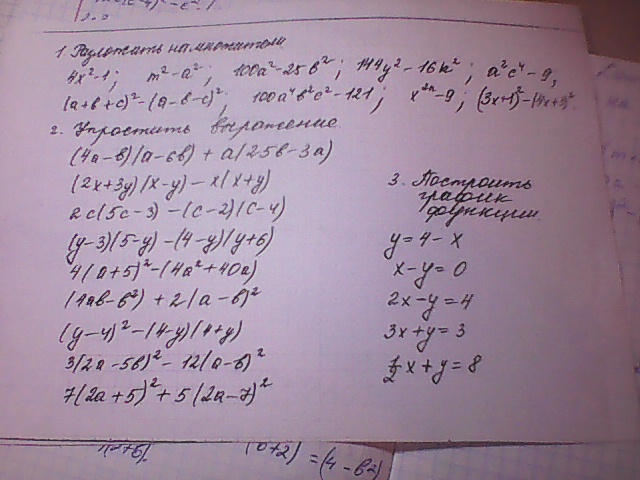 1. Разложить на множители
4x²-1; m²-a²; 100a²-25b²; 144y²-16k²; a²c⁴-9;
(a+b+c)²-(a-b-c)²; 100a⁴b²c²-121; x²ⁿ-9; (3x+1)²-(4x+3)²
2. Упростить выражение
(4a-b)(a-6b)+a(25b-3a)
(2x+3y)(x-y)-x(x+y)
2c(5c-3)-(c-2)(c-4)
(y-3)(5-y)-(4-y)(y+6)
4(a+5)²-(4a²+40a)
(4ab-b²)+2(a-b)²
(y-4)²-(4-y)(4+y)
3(2a-5b)²-12(a-b)²
7(2a+5)²+5(2a-7)²
3. Построить
график
функции
y=4-x
x-y=0
2x-y=4
3x+y=3
½x+y=8
=(4-b²)